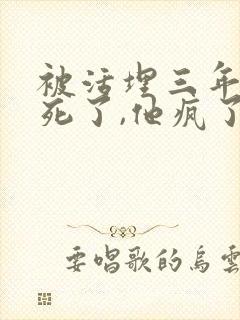 被活埋三年
死了,他疯了
要唱歌的烏雲